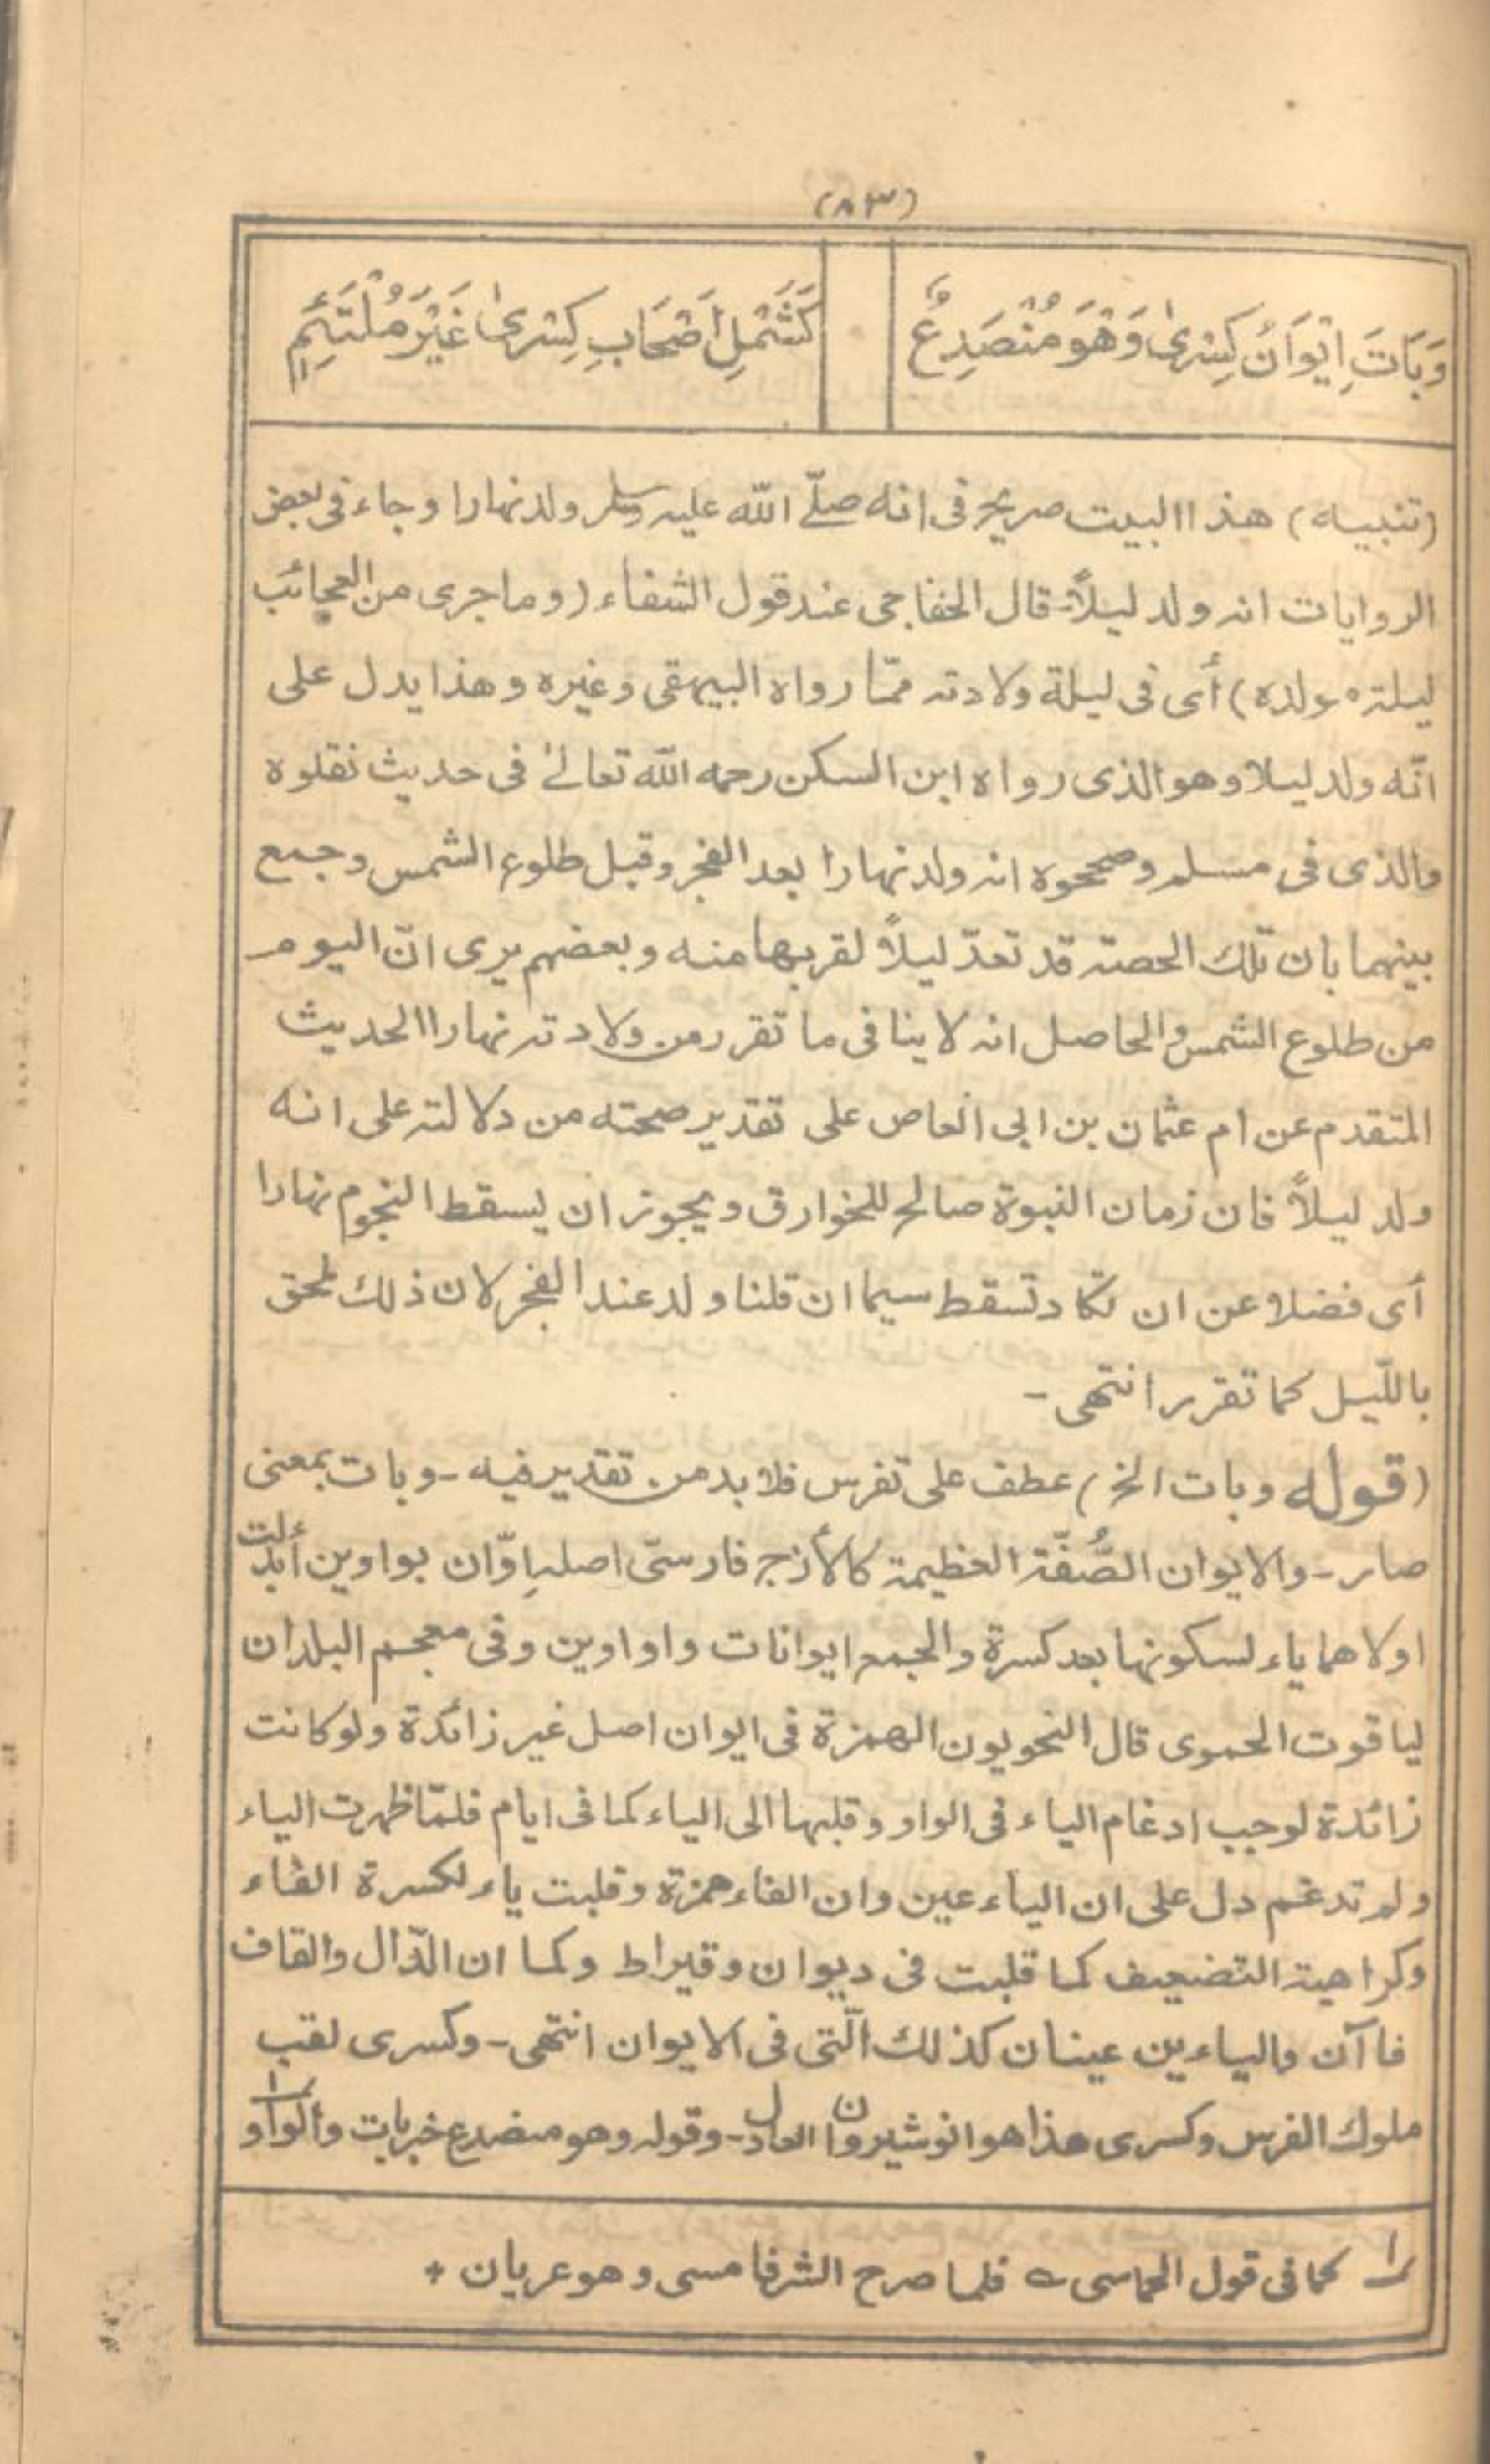 (٨٣)
وَبَاتَ اِيْوَانُ كِسْرىٰ وَهْوَ مُنْصَدِعٌ
كَشَمْلِ اَصْحَابِ كِسْرىٰ غَيْرَ مُلْتَئِمٖ
(تنبيه) هذا البيت صريح فى انه صلّے الله عليہ وسلم ولد نهارا و جاء فى بعض
الروايات انہ ولد ليلاً- قال الخفاجى عند قول الشفاء (وما جرى من العجائب
ليلتہ مولده) أى فى ليلة ولادتہ ممّا رواه البيهقى وغيره وهذا يدل على
انّه ولد ليلا وهو الذى رواه ابن السكن رحمه الله تعالےٰ فى حديث نقلوه
والذى فى مسلم وصححوه انہ ولد نهارا بعد الفجر وقبل طلوع الشمس وجمع
بينهما بان تلك الحصتہ قد تعدّ ليلاً لقربها منه وبعضهم يرى انّ اليوم
من طلوع الشمس والحاصل انہ لا ينافى ما تقرر من ولادتہ نهارا الحديث
المتقدم عن ام عثمان بن ابى العاص على تقدير صحته من دلالتہ على انه
ولد ليلاً فان زمان النبوة صالح للخوارق ويجوز ان يسقط النجوم نهارا
أى فضلا عن ان تكاد تسقط سيما ان قلنا ولد عند الفجر لان ذلك ملحق
باللّيل كما تقرر انتهى -
(قوله وبات الخ) عطف على تفرس فلا بد من تقدير فيه - وبات بمعنى
صار - والايوان الصُّفّة العظيمة كالأزج فارسىّ اصلہ اِوّان بواوين أبدلت
اولاهما ياء لسكونها بعد كسرة والجمع ايوانات واواوين وفى معجم البلدان
لياقوت الحموى قال النحويون الهمزة فى ايوان اصل غير زائدة ولو كانت
زائدة لوجب ادغام الياء فى الواو وقلبها الى الياء كما فى ايام فلمّا ظهرت الياء
ولم تدغم دل على ان الياء عين وان الفاء همزة وقلبت ياء لكسرة الفاء
وكراهية التضعيف كما قلبت فى ديوان وقيراط وكما ان الدّال والقاف
فاآن والياءين عينان كذلك الّتى فى الايوان انتهى - وكسرى لقب
ملوك الفرس وكسرى هذا هو انوشيروان العادل - وقوله وهو منصدع خبر بات والواو
١ كما فى قول الحماسى ؎ فلما صرح الشر فامسى وهو عريان +